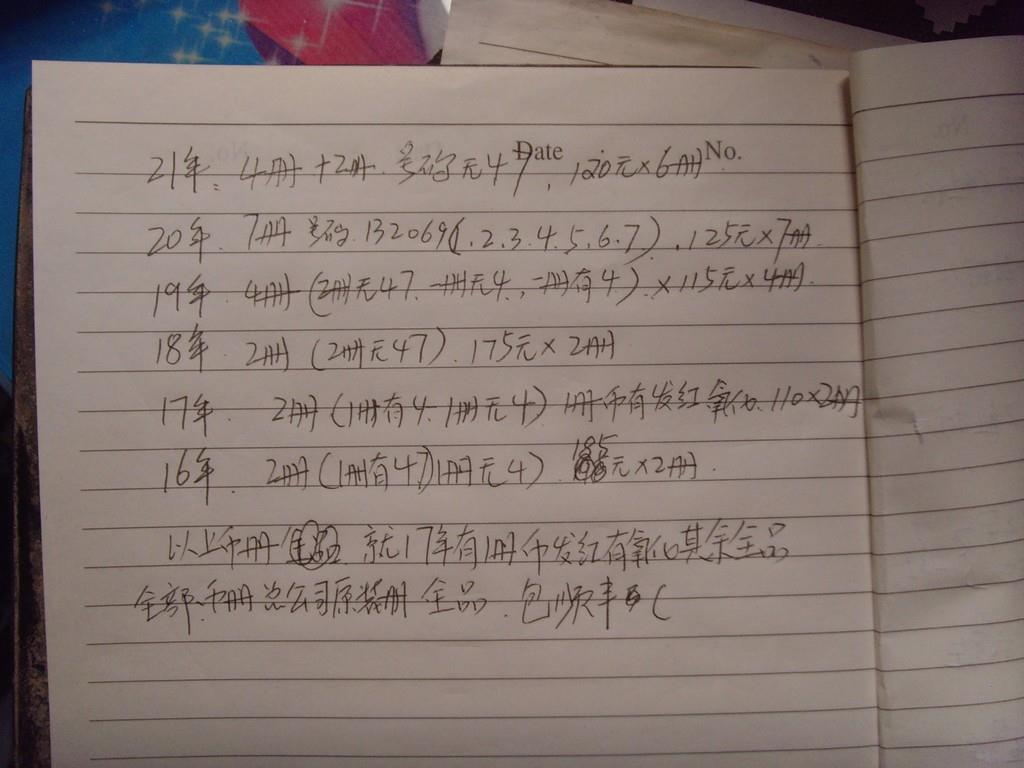 Date No.
21年: 4册+2册.号码无47, 120元×6册
20年. 7册 号码.132069(.2.3.4.5.6.7).125元×7册.
19年. 4册(2册无47.一册无4,一册有4).×115元×4册.
18年. 2册 (2册无47).175元×2册
17年. 2册(1册有4.1册无4) 1册币有发红氧化.110×2册
16年. 2册(1册有47)1册无4). 185元×2册.
以上币册 就17年有1册币发红有氧化其余全品
全部币册总公司原装册 全品.包顺丰(